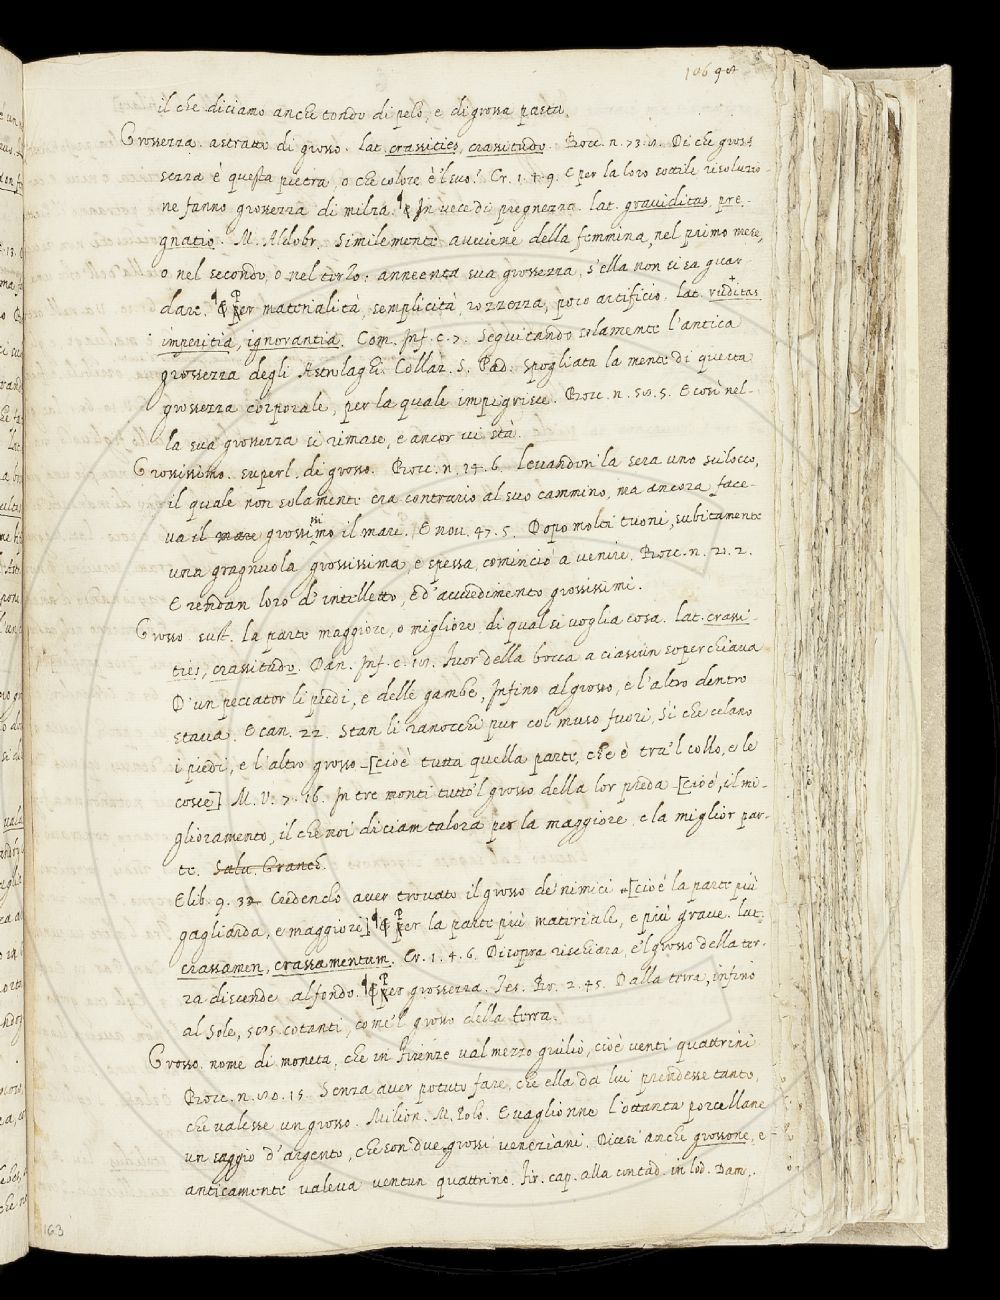 106 98
il che diciamo anche tondo di pelo, e di grossa pasta.
Grossezza. astratto di grosso. lat. crassities, crassitudo. Bocc. n. 73. 10. Di che gros=
sezza è questa pietra, o che colore è il suo? Cr. 1. 4. 9. E per la loro sottile risoluzio=
ne fanno grossezza di milza. ¶ In vece di pregnezza. lat. graviditas, pre-
gnatio. M. Aldobr. Similemente avviene della femmina, nel primo mese,
o nel secondo, o nel terzo: anneenta sua grossezza, s'ella non si sa guar-
dare. ¶ Per materialità, semplicità, rozzezza, poco artificio. lat. ruditas
imperitia, ignorantia. Com. Inf. c. 7. Seguitando solamente l'antica
grossezza degli Astrolaghi. Collaz. S. Pad. spogliata la mente di questa
grossezza corporale, per la quale impigrisce. Bocc. n. 50. 5. E così nel-
la sua grossezza si rimase, e ancor vi stà.
Grossissimo. superl. di grosso. Bocc. n. 14. 6. levandosi la sera uno scilocco,
il quale non solamente era contrario al suo cammino, ma ancora face-
va il mare grossissimo il mare. E nov. 47. 5. Dopo molti tuoni, subitamente
una gragnuola grossissima, e spessa, cominciò a venire. Bocc. n. 21. 2.
E rendan loro d'intelletto, e d'avvedimento grossissimi.
Grosso sust. la parte maggiore, o migliore di qual si voglia cosa. lat. crassi-
ties, crassitudo. Dan. Inf. c. 19. Fuor della bocca a ciascun soperchiava
D'un peccator li piedi, e delle gambe, Infino al grosso, e l'altro dentro
stava. E can. 22. Stan li ranocchi pur col muso fuori, Sì che celano
i piedi, e l'altro grosso [cioè tutta quella parte, che è tra'l collo, e le
cosce] M. V. 7. 16. In tre monti tutto'l grosso della lor preda [cioè, il mi-
glioramento, il che noi diciam talora per la maggiore, e la miglior par-
te. Salv. Granch.
E lib. 9. 32 Credendo aver trovato il grosso de nimici [cioè la parte più
gagliarda, e maggiore] ¶ Per la parte più materiale, e più grave. lat.
crassamen, crassamentum. Cr. 1. 4. 6. Disopra rischiara, e'l grosso della ter-
ra discende al fondo. ¶ Per grossezza. Tes. Br. 2. 45. Dalla terra, infino
al Sole, 505. cotanti, come'l grosso della terra.
Grosso. nome di moneta, che in Firenze val mezzo giulio, cioè venti quattrini
Bocc. n. 80. 15. Senza aver potuto fare, che ella da lui prendesse tanto,
che valesse un grosso. Milion. M. Polo. E vaglionne l'ottanta porcellane
un saggio d'argento, che son due grossi veneziani. Dicesi anche grossone, e
anticamente valeva ventun quattrino. Fir. cap. alla contad. in lod. Dam.
163